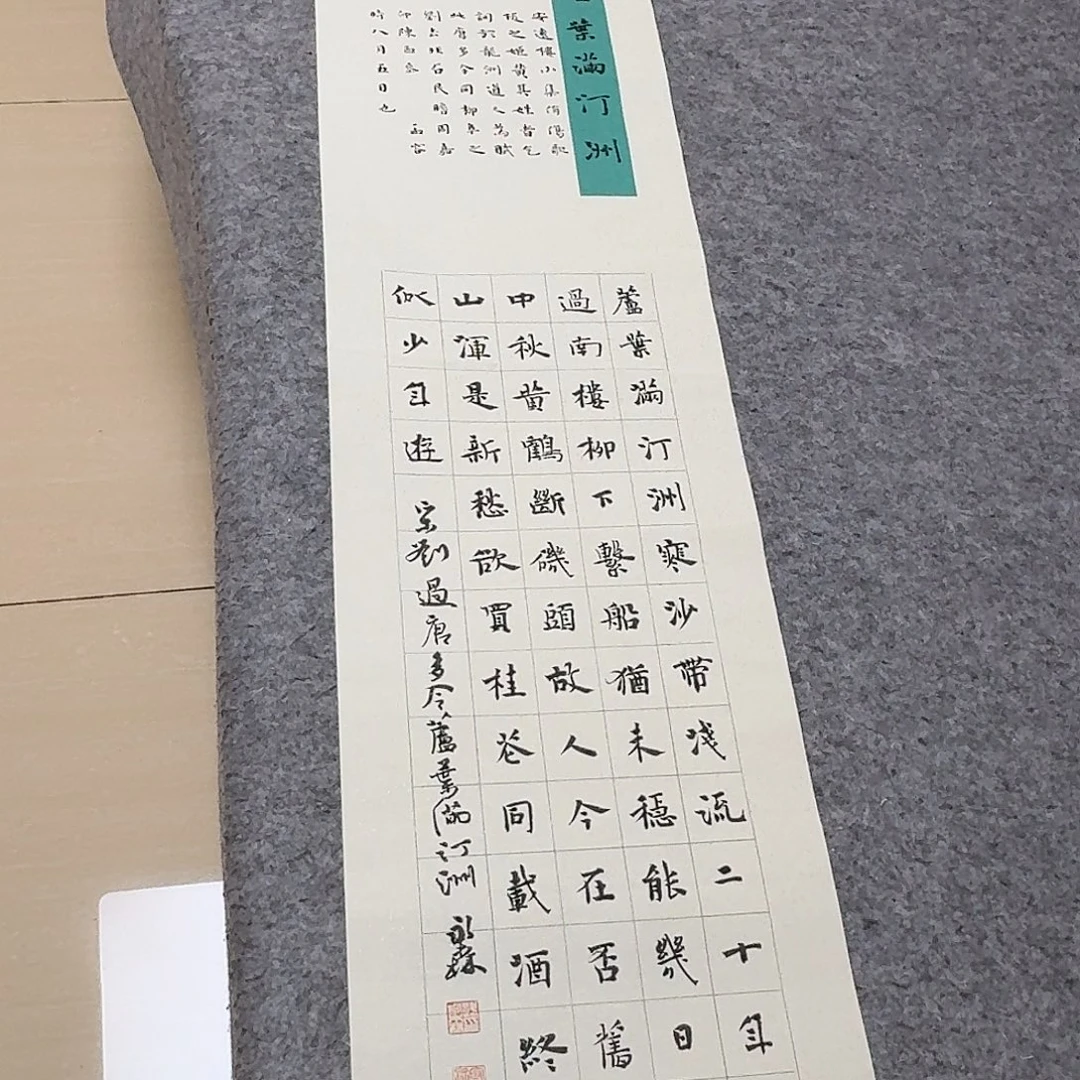 葉滿汀洲
安遠樓小集侑觴歌
板之姬黃其姓者乞
詞於龍洲道人為賦
此唐多令同柳阜之
劉去非石民瞻周嘉
仲陳孟參孟容
時八月五日也
蘆葉滿汀洲寒沙帶淺流二十年
過南樓柳下繫船猶未穩能幾日
中秋黃鶴斷磯頭故人今在否舊
山渾是新愁欲買桂花同載酒終
似少年遊
宋劉過唐多令蘆葉滿汀洲